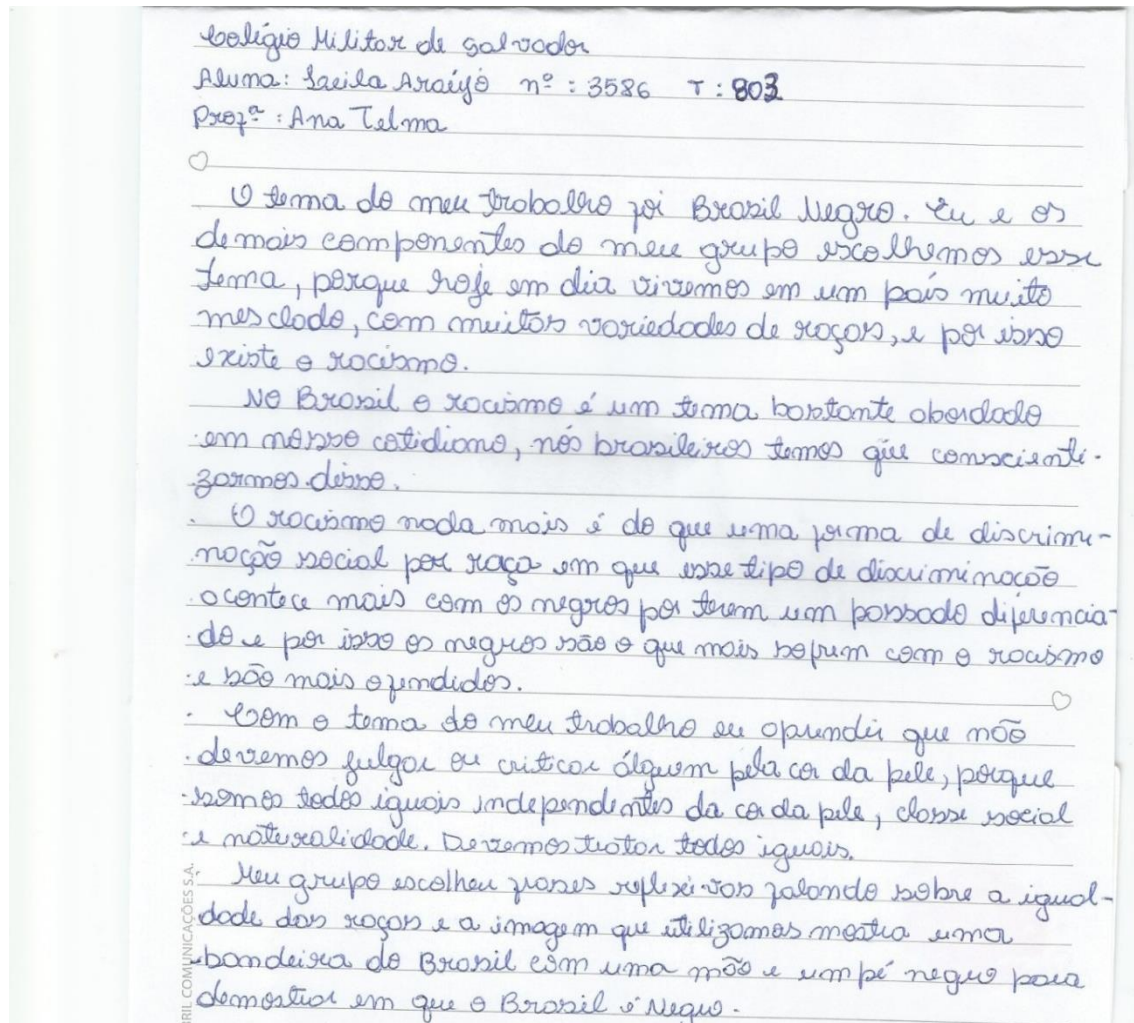 Colégio Militar de Salvador
Aluna: Laeila Araújo nº: 3586 T: 803
Profª: Ana Telma
O tema do meu trabalho foi Brasil Negro. Eu e os
demais componentes do meu grupo escolhemos esse
tema, porque hoje em dia vivemos em um país muito
mesclado, com muitas variedades de raças, e por isso
existe o racismo.
No Brasil o racismo é um tema bastante abordado
em nosso cotidiano, nós brasileiros temos que conscienti-
zarmos disso.
O racismo nada mais é do que uma forma de discrimi-
nação social por raça em que esse tipo de discriminação
acontece mais com os negros por terem um passado diferencia-
do e por isso os negros são o que mais sofrem com o racismo
e são mais ofendidos.
Com o tema do meu trabalho eu aprendi que não
devemos julgar ou criticar alguém pela cor da pele, porque
somos todos iguais independentes da cor da pele, classe social
e naturalidade. Devemos tratar todos iguais.
Meu grupo escolheu frases reflexivas falando sobre a igual-
dade das raças e a imagem que utilizamos mostra uma
bandeira do Brasil com uma mão e um pé negro para
demostrar em que o Brasil é Negro.
BRIL COMUNICAÇÕES S.A.